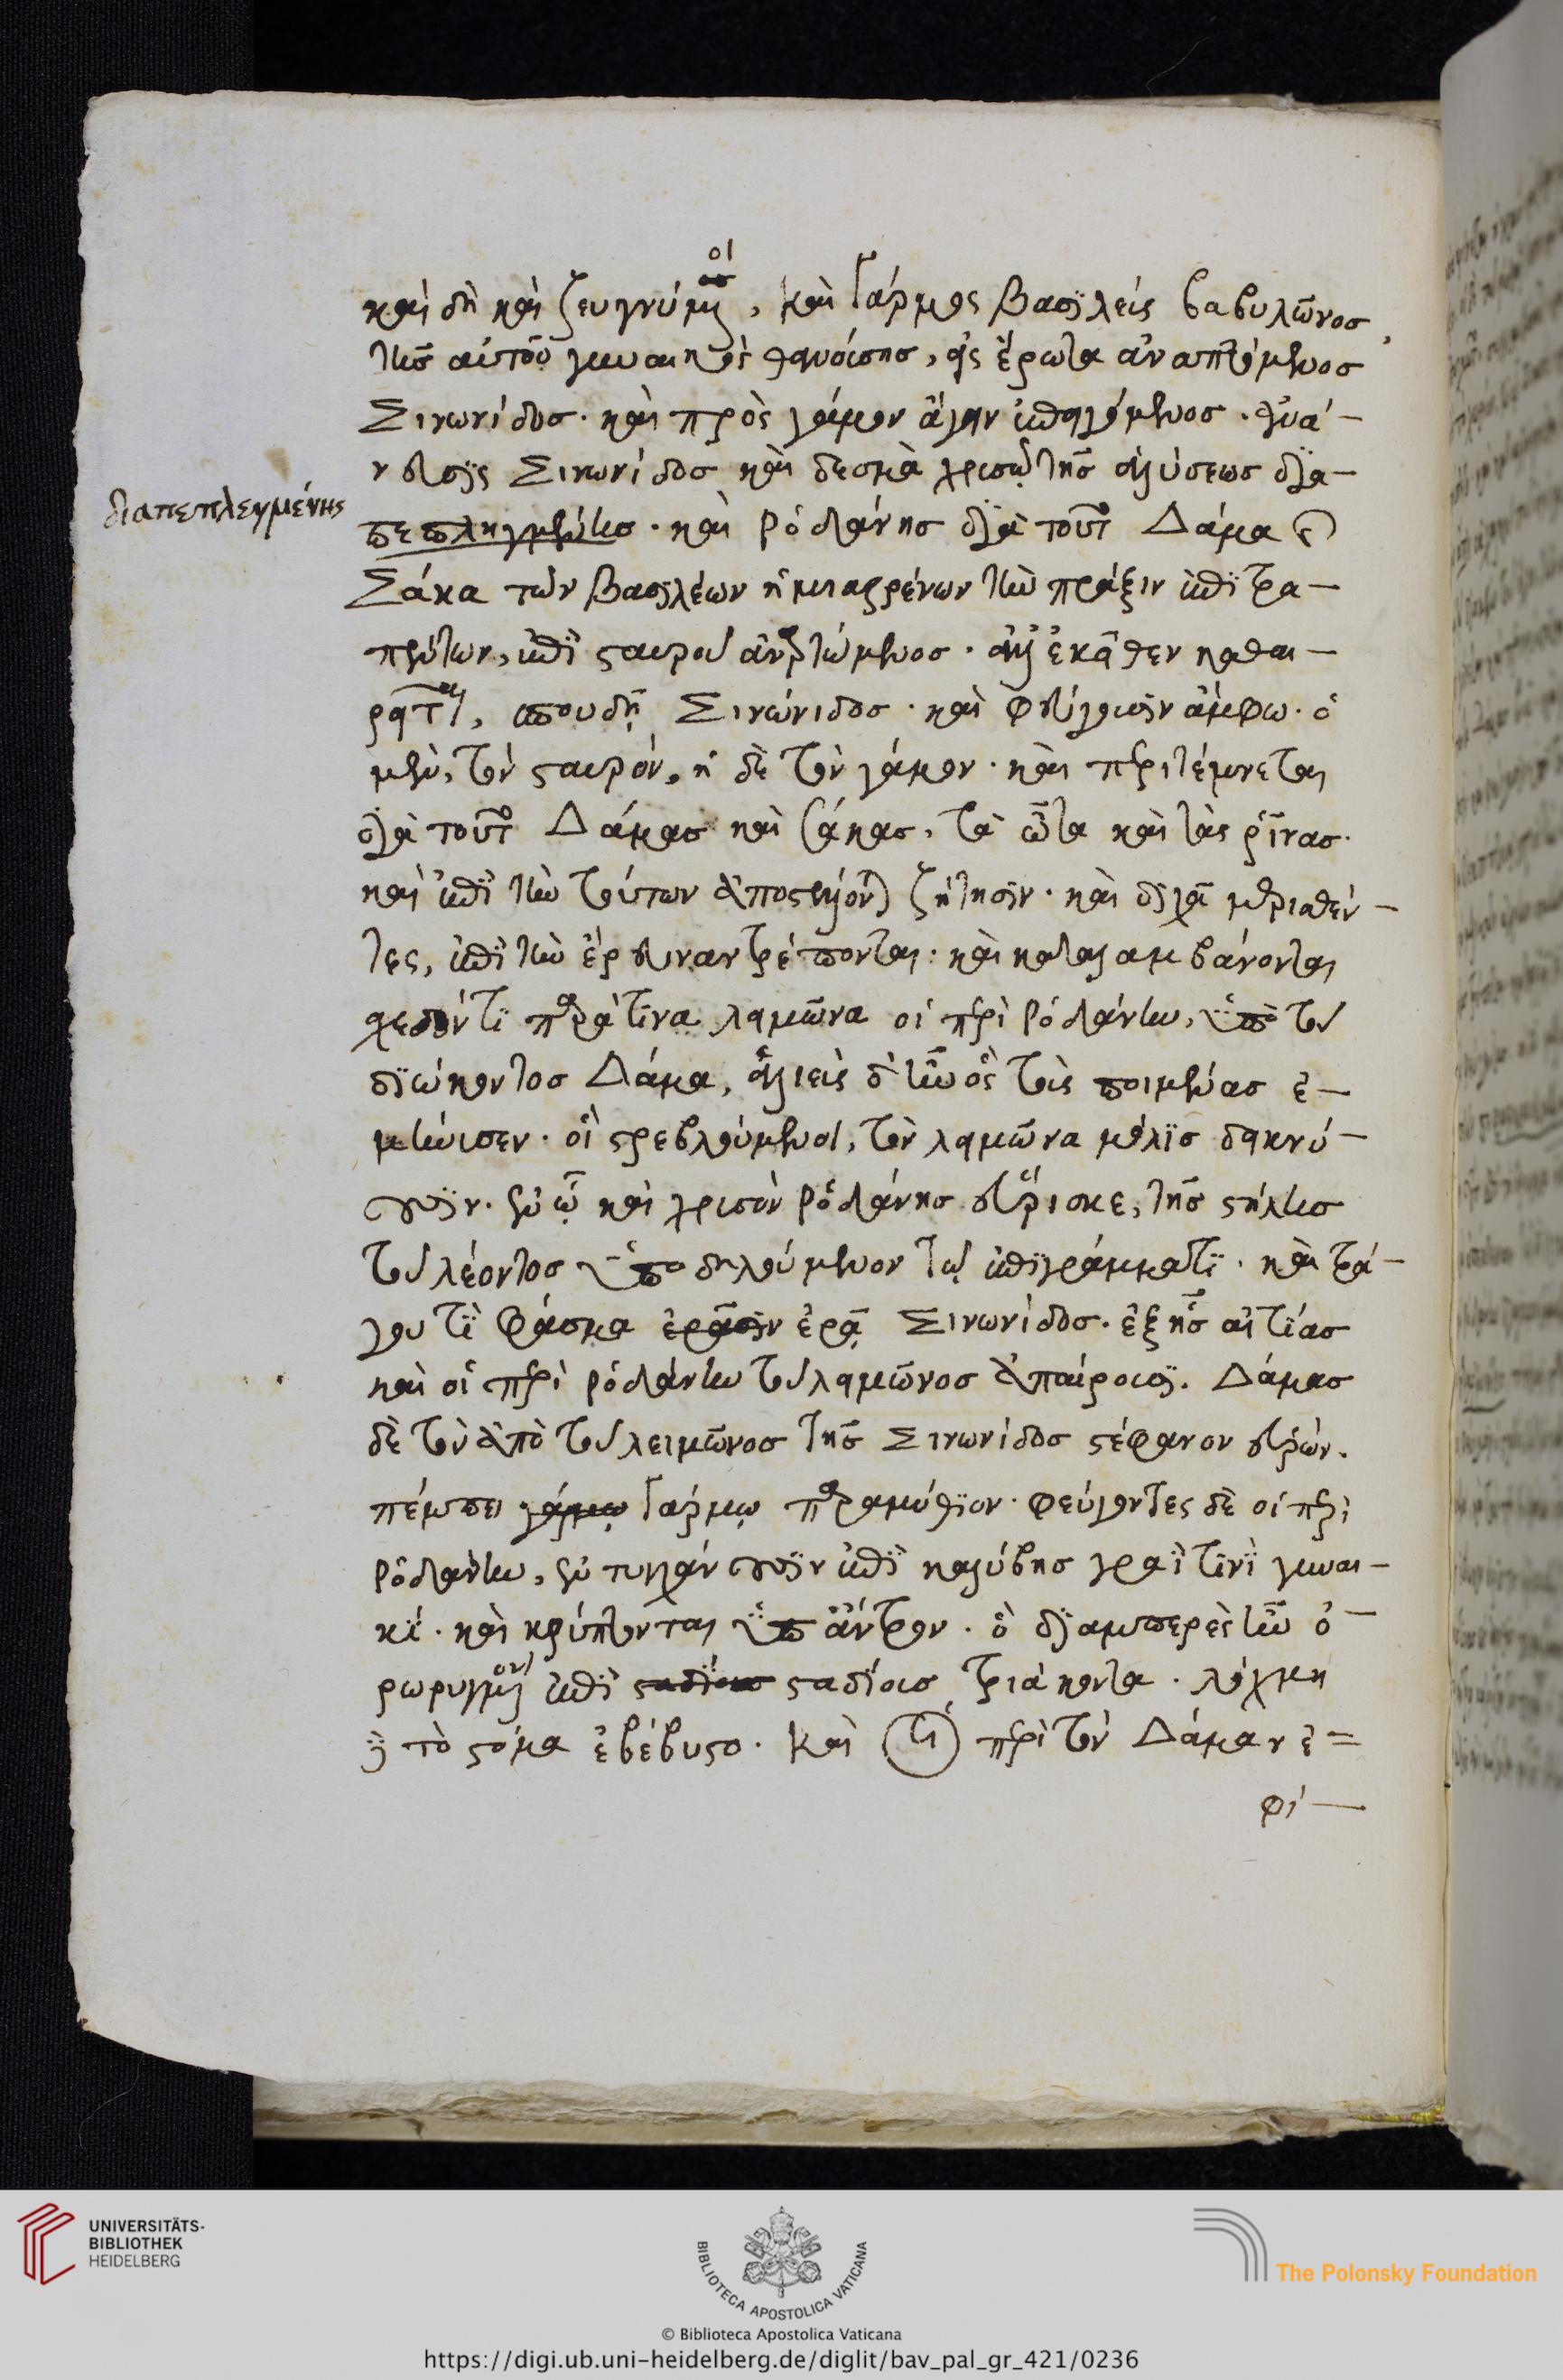 καὶ δὴ καὶ ζευγνύμενοι, καὶ Γάρμος βασιλεὺς βαβυλῶνος
τῆς αὐτοῦ γυναικὸς θανούσης, εἰς ἔρωτα ἀναπτόμενος
Σινωνίδος· καὶ πρὸς γάμον ἄγειν ἐπειγόμενος. ἀνά-
νευσις Σινωνίδος καὶ δεσμὰ χρυσῷ τῆς ἁλύσεως δια-
διαπεπλεγμένης
πεπληγμένης· καὶ Ῥοδάνης διὰ τοῦτο Δάμα καὶ
Σάκα τῶν βασιλέων τὴν πρᾶξιν ἐπιτρα-
πέντων, ἐπὶ σταυροῦ ἀναρτώμενος. ἀλλ' ἐκεῖθεν καθαι-
ρεῖται, σπουδῇ Σινωνίδος· καὶ φεύγουσιν ἄμφω· ὁ
μὲν, τὸν σταυρόν, ἡ δὲ τὸν γάμον· καὶ περιτέμνεται
διὰ τοῦτο Δάμας καὶ Σάκας, τὰ ὦτα καὶ τὰς ῥῖνας.
καὶ ἐπὶ τὴν τούτων ἀποστέλλονται ζήτησιν· καὶ δίχα μερισθέν-
τες, ἐπὶ τὴν ἔρευναν τρέπονται· καὶ καταλαμβάνονται
σχεδόν τι παρά τινα λειμῶνα οἱ περὶ Ῥοδάνην, ὑπὸ τοῦ
διώκοντος Δάμα, ἁλιεὺς δ' ἦν ὃς τοὺς ποιμένας ἐ-
μήνυσεν· οἳ στρεβλούμενοι, τὸν λειμῶνα μόλις δεικνύ-
ουσιν. ἐν ᾧ καὶ χρυσὸν Ῥοδάνης εὕρισκε, τῆς στήλης
τοῦ λέοντος ὑποδηλούμενον τῷ ἐπιγράμματι. καὶ τρά-
γου τι φάσμα ἐρᾶσιν ἐρᾷ Σινωνίδος. ἐξ ἧς αἰτίας
καὶ οἱ περὶ Ῥοδάνην τοῦ λειμῶνος ἀπαίρουσι. Δάμας
δὲ τὸν ἀπὸ τοῦ λειμῶνος τῆς Σινωνίδος στέφανον εὑρών.
πέμπει γάρμω Γάρμῳ παραμύθιον. φεύγοντες δὲ οἱ περὶ
Ῥοδάνην, ἐντυγχάνουσιν ἐπὶ καλύβης γραΐ τινι γυναι-
κί. καὶ κρύπτονται ὑπ' ἄντρον. ὃ διαμπερὲς ἦν ὀ-
ρωρυγμένον ἐπὶ σταδίους σταδίοις τριάκοντα. λόχμῃ
δὲ τὸ στόμα ἐβέβυστο. καὶ οἱ περὶ τὸν Δάμαν ἐ=
φί-
UNIVERSITÄTS-
BIBLIOTHEK
HEIDELBERG
BIBLIOTECA APOSTOLICA VATICANA
The Polonsky Foundation
© Biblioteca Apostolica Vaticana
https://digi.ub.uni-heidelberg.de/diglit/bav_pal_gr_421/0236